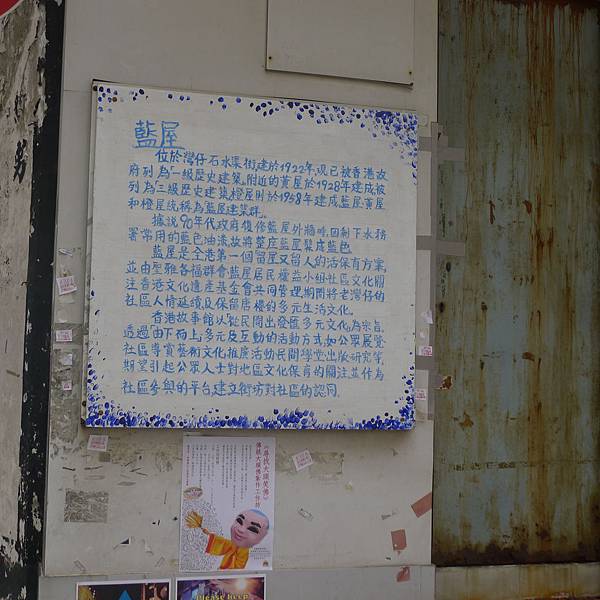 藍屋
位於灣仔石水渠街,建於1922年,現已被香港政
府列為一級歷史建築,附近的黃屋於1928年建成,被
列為三級歷史建築,橙屋則於1958年建成,藍屋,黃屋
和橙屋統稱為藍屋建築群。
據說90年代政府復修藍屋外牆時,因剩下水務
署常用的藍色油漆,故將整座藍屋髹成藍色
藍屋是全港第一個留屋又留人的活保育方案,
並由聖雅各福群會,藍屋居民權益小組,社區文化關
注,香港文化遺產基金會共同管理,期間將老灣仔的
社區人情延續,及保留唐樓的多元生活文化。
香港故事館以「從民間出發,匯多元文化」為宗旨,
透過由下而上,多元及互動的活動方式,如公眾展覽,
社區導賞,藝術文化推廣活動,民間學堂,出版研究等,
期望引起公眾人士對地區文化保育的關注,並作為
社區參與的平台,建立街坊對社區的認同.
《尋找大頭笑佛》
傳統大頭佛製作工作坊
Please Keep